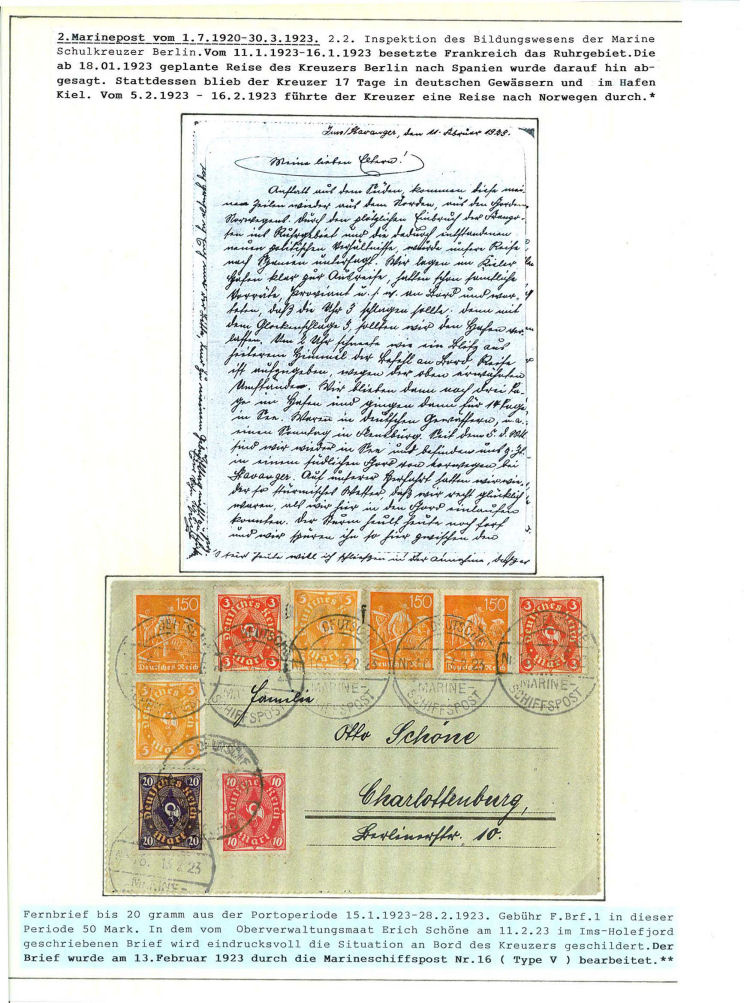 2.Marinepost vom 1.7.1920-30.3.1923. 2.2. Inspektion des Bildungswesens der Marine
Schulkreuzer Berlin.Vom 11.1.1923-16.1.1923 besetzte Frankreich das Ruhrgebiet.Die
ab 18.01.1923 geplante Reise des Kreuzers Berlin nach Spanien wurde darauf hin ab-
gesagt. Stattdessen blieb der Kreuzer 17 Tage in deutschen Gewässern und im Hafen
Kiel. Vom 5.2.1923 - 16.2.1923 führte der Kreuzer eine Reise nach Norwegen durch.*
Ims/Stavanger, den 11. Februar 1923.
Meine lieben Eltern!
Anstatt aus dem Süden, kommen diese mei-
nen Zeilen wieder aus dem Norden, aus den Fjorden
Norwegens. Durch den plötzlichen Einbruch der Franzo-
sen ins Ruhrgebiet und die dadurch entstandenen
neuen politischen Verhältnisse, wurde unsere Reise
nach Spanien untersagt. Wir lagen im Kieler
Hafen klar zur Ausreise, hatten schon sämtliche
Vorräte, Proviant u.s.w. an Bord und war-
teten, daß die Uhr 3 schlagen sollte; denn mit
dem Glockenschlage 3, sollten wir den Hafen ver
lassen. Um 2 Uhr schneite wie ein Blitz aus
heiterem Himmel der Befehl an Bord: Reise
ist aufzugeben, wegen der oben erwähnten
Umstände. Wir blieben dann noch drei Ta-
ge im Hafen und gingen dann für 14 Tage
in See. Waren in deutschen Gewässern, u.a.
einen Sonntag in Flensburg. Seit dem 5. d. Mt.
sind wir wieder in See und befinden uns z. Zt.
in einem südlichen Fjord von Norwegen bei
Stavanger. Auf unserer Herfahrt hatten wir
der so stürmisches Wetter, daß wir recht glücklich
waren, als wir hier in den Fjord einlaufen
konnten. Der Sturm heult heute noch fort
und wir spüren ihn so hier zwischen den
Für heute will ich schließen in der Annahme, daß
150
3 Deutsches Reich 3
3 Mark 3
5 Deutsches Reich 5
150
150
3 Deutsches Reich 3
3 Mark 3
Deutsches Reich
DEUTSCHE
MARINE-
SCHIFFSPOST
5 5
5 Mark 5
Familie
Otto Schöne
20 20
Deutsches Reich
20 20
10 10
Deutsches Reich
10 Mark 10
Charlottenburg,
Berlinerstr. 10.
13.2.23
MARINE-
Fernbrief bis 20 gramm aus der Portoperiode 15.1.1923-28.2.1923. Gebühr F.Brf.1 in dieser
Periode 50 Mark. In dem vom Oberverwaltungsmaat Erich Schöne am 11.2.23 im Ims-Holefjord
geschriebenen Brief wird eindrucksvoll die Situation an Bord des Kreuzers geschildert.Der
Brief wurde am 13.Februar 1923 durch die Marineschiffspost Nr.16 ( Type V ) bearbeitet.**